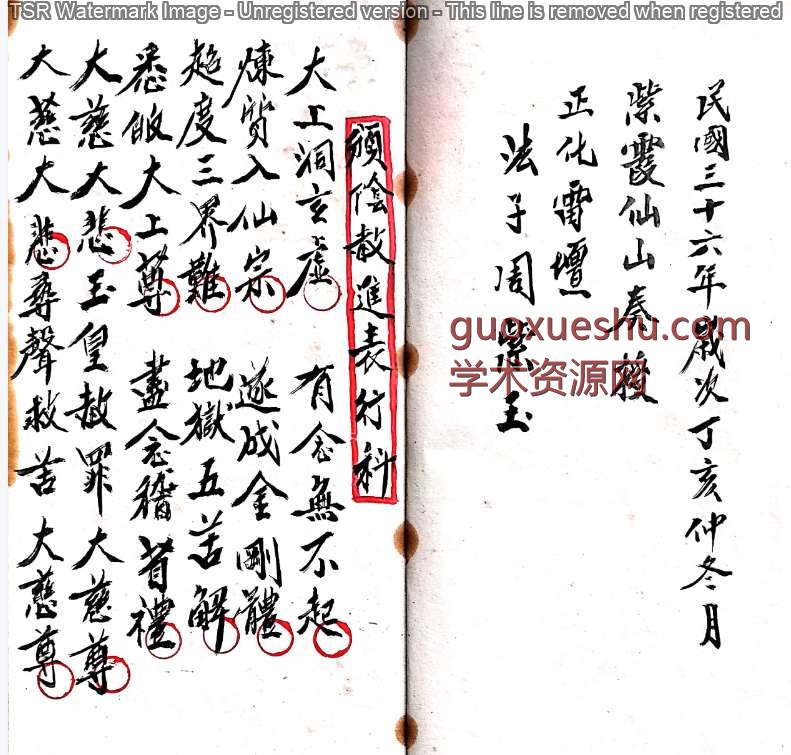 TSR Watermark Image - Unregistered version - This line is removed when registered
民國三十六年歲次丁亥仲冬月
紫霞仙山奏授
正化雷壇
法子周紫玉
頒陰赦進表行科
大上洞玄虛 有念無不起
煉質入仙宗 遂成金剛體
超度三界難 地獄五苦解
悉皈大上尊 盡念稽首禮
大慈大悲玉皇赦罪 大慈尊
大慈大悲尋聲救苦 大慈尊
guoxueshu.com
学术资源网